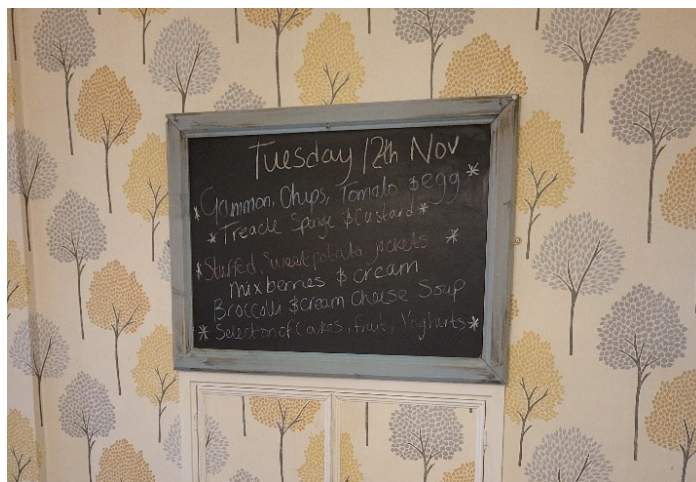 Tuesday 12th Nov
*Gammon, Chips, Tomato & egg*
*Treacle Sponge & Custard*
*Stuffed, Sweet potato jackets *
Mixberries & cream
Broccoli & cream cheese Soup
*Selection of Cakes, fruit, Yoghurts*